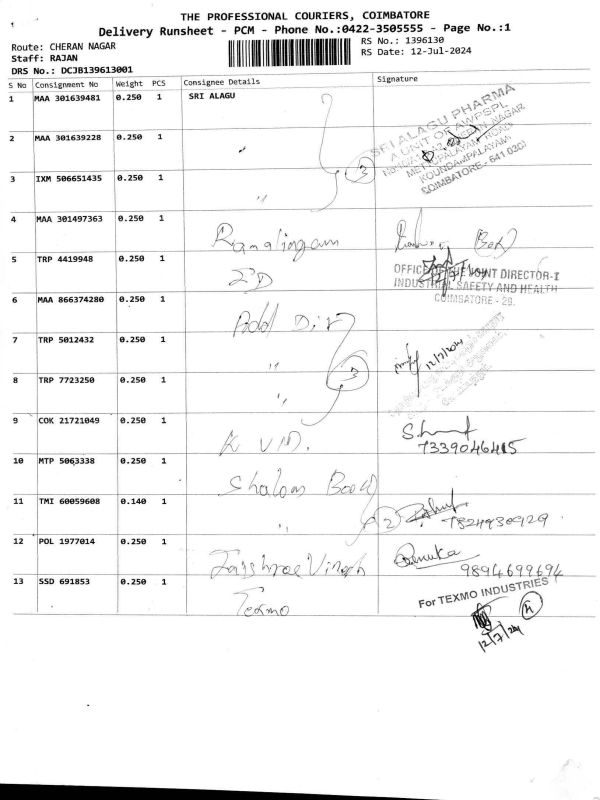 THE PROFESSIONAL COURIERS, COIMBATORE
Delivery Runsheet - PCM - Phone No.:0422-3505555 - Page No.:1
Route: CHERAN NAGAR
Staff: RAJAN
DRS No.: DCJB139613001
RS No.: 1396130
RS Date: 12-Jul-2024
S No Consignment No Weight PCS Consignee Details Signature
1 MAA 301639481 0.250 1 SRI ALAGU
SRI ALAGU PHARMA
A UNIT OF AWPSPL
METTUPALAYAM ROAD
KOUNDAMPALAYAM
COIMBATORE - 641 030
2 MAA 301639228 0.250 1 〃
3 IXM 506651435 0.250 1 〃 3
4 MAA 301497363 0.250 1 Ramalingam
5 TRP 4419948 0.250 1 JD
OFFICE OF THE JOINT DIRECTOR-I
INDUSTRIAL SAFETY AND HEALTH
COIMBATORE - 29.
6 MAA 866374280 0.250 1 Addl Dir
7 TRP 5012432 0.250 1 〃 3 12/7/2024
8 TRP 7723250 0.250 1 〃
9 COK 21721049 0.250 1 K V M.
7339046415
10 MTP 5063338 0.250 1 Shalom Book
11 TMI 60059608 0.140 1 〃 2
7824930929
12 POL 1977014 0.250 1 Jaishree Vinoth Renuka
9894699694
13 SSD 691853 0.250 1 Texmo
For TEXMO INDUSTRIES
12/7/24